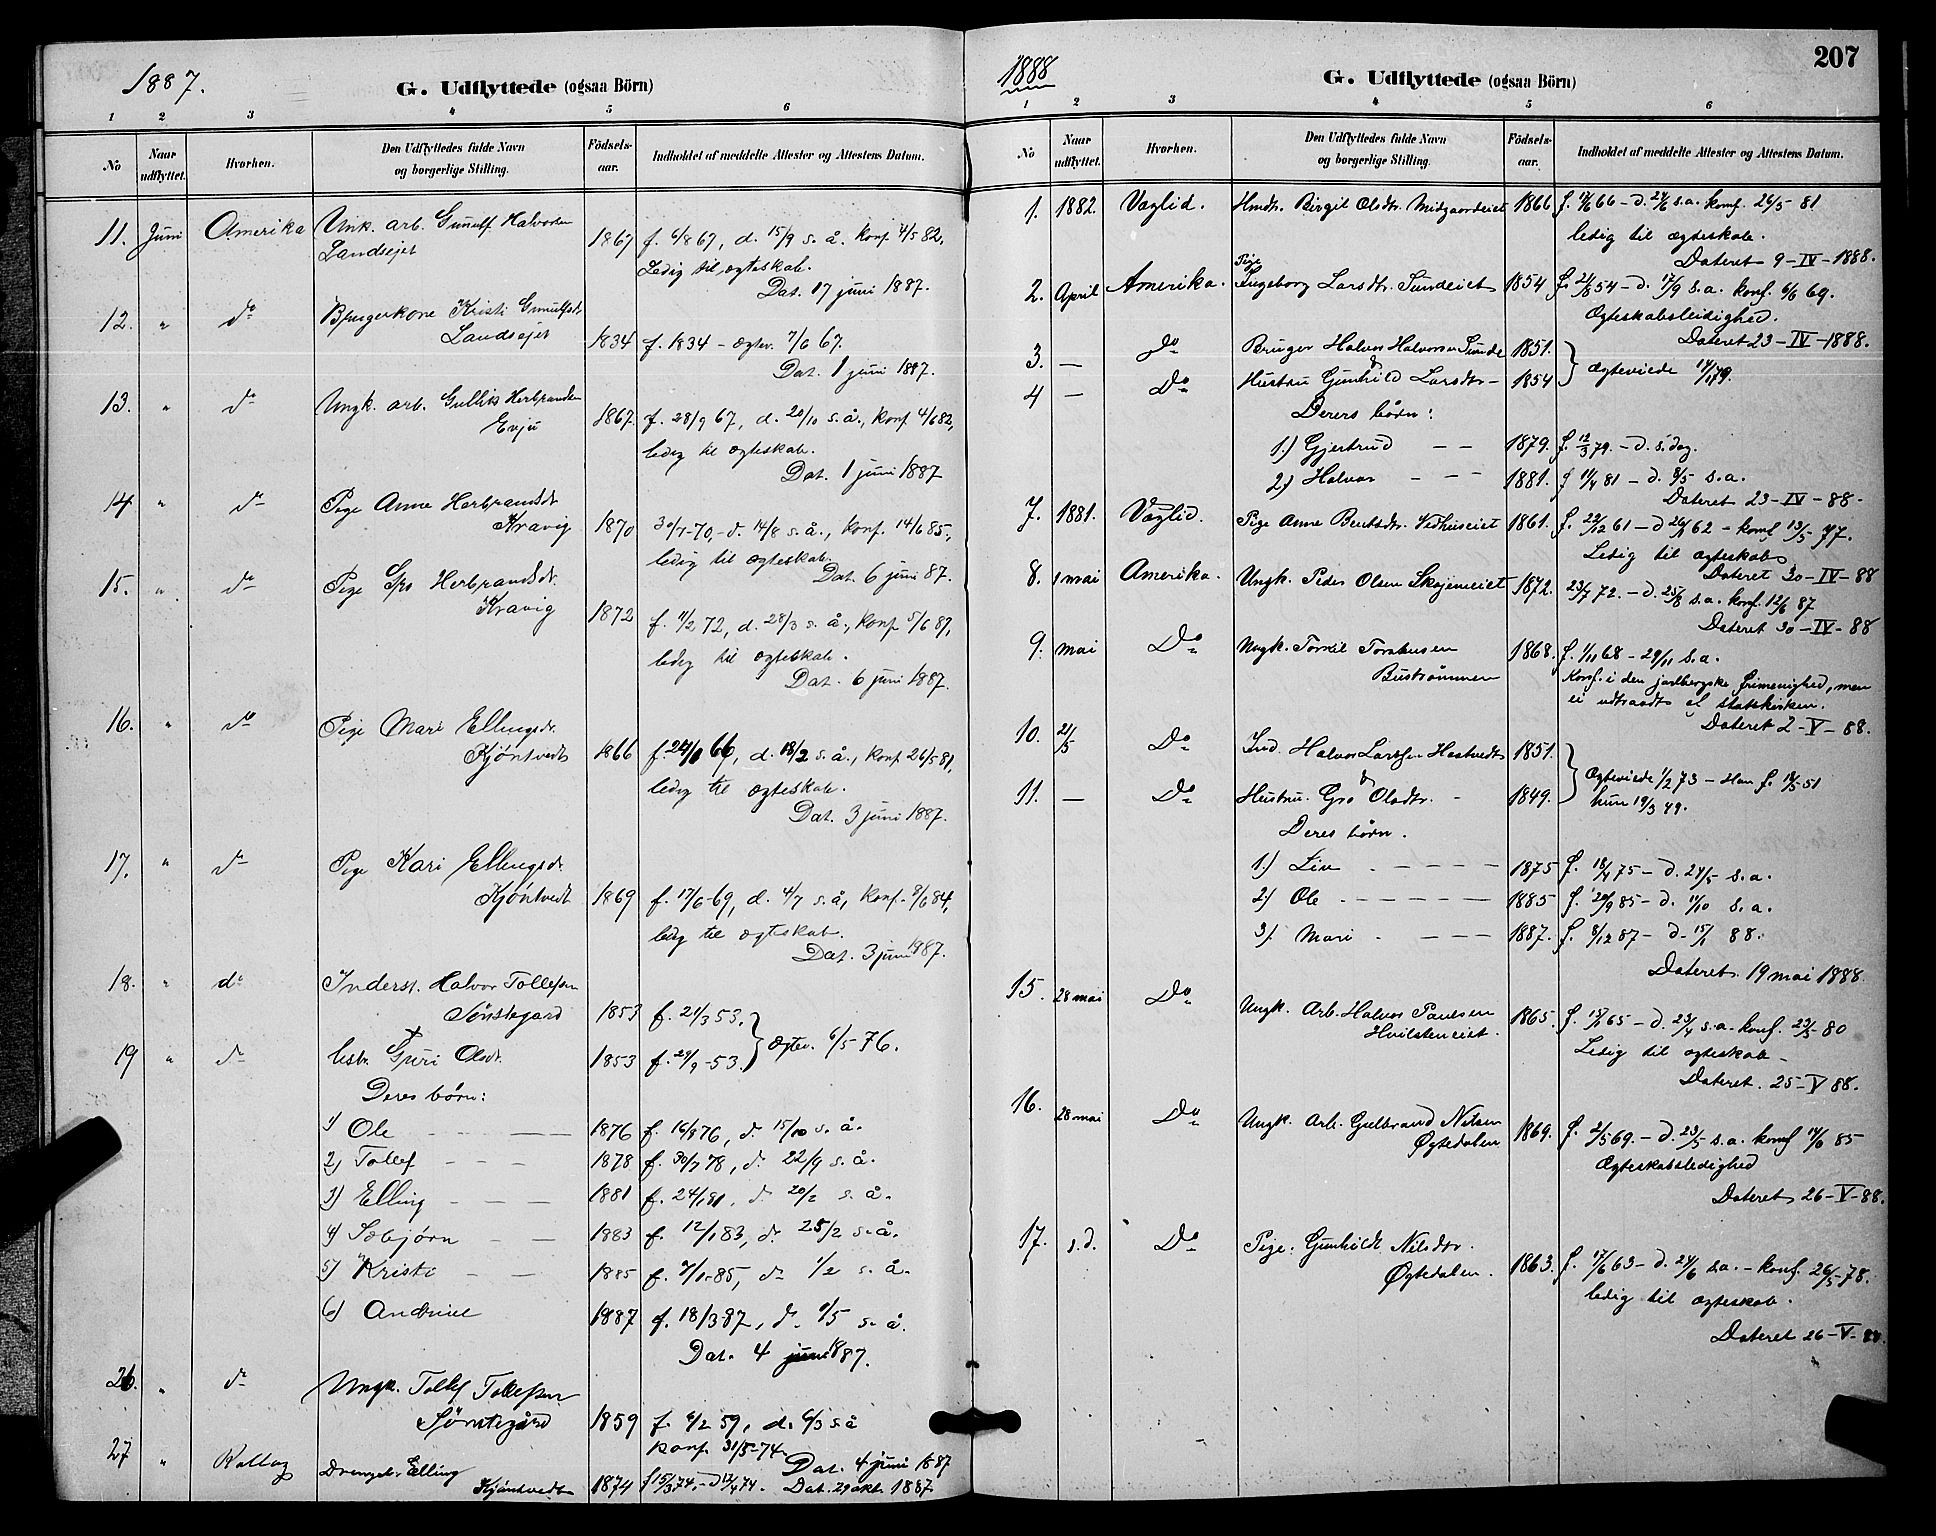 1887.
G. Udflyttede (ogsaa Börn)
1 2 3 4 5 6
No Naar udflyttet. Hvorhen. Den Udflyttedes fulde Navn og borgerlige Stilling. Födsels-aar. Indholdet af meddelte Attester og Attestens Datum.
11. Juni Amerika Unk. arb. Gunulf Halvorsen
Landsejet 1867 f. 6/8 67, d. 15/9 s. å. konf. 4/5 82,
Ledig til ægteskab.
Dat. 17 juni 1887.
12. " do Brugerkone Kristi Gunulfsdr
Landsejet 1834 f. 1834 - ægtev. 7/6 67.
Dat. 1 juni 1887.
13. " do Ungk. arb. Gullik Herbrandsen
Evju 1867. f. 28/9 67, d. 20/10 s. å., konf. 4/6 82,
ledig til ægteskab.
Dat. 1 juni 1887
14 " do Pige Anne Herbrandsdr
Kravig 1870 30/7-70,- d. 14/8 s. å., konf. 14/6 85.,
ledig til ægteskab.
Dat. 6 juni 87.
15. " do Pige Herbrandsdr.
Kravig 1872 f. 11/2 72, d. 28/3 s. å., konf 5/6 87,
ledig til ægteskab.
Dat. 6 juni 1887.
16. " do Pige Mari Ellingsdr.
Kjöntvedt 1866 f. 24/1 66, d. 18/2 s. å., konf 26/5 81,
ledig til ægteskab.
Dat. 3 juni 1887.
17. " do Pige Kari Ellingsdr.
Kjöntvedt 1869 f. 17/6-69, d. 4/7 s. å, konf. 8/6 84,
ledig til ægteskab.
Dat. 3 juni 1887.
18. " do Inderst. Halvor Tollefsen
Sönstegard 1853 f. 21/3 53.
19 " do Guri Olsdr. 1853 f. 29/9 -53. ægtev. 6/5-76.
Deres börn:
1) Ole 1876 f. 16/9 76, d. 15/10 s. å.
2) Tollef 1878 f. 30/7 78, d. 22/9 s. å.
3) Elling 1881 f. 24/1 81, d. 20/2 s. å.
4) Sebjörn 1883 f. 12/1 83, d. 25/2 s. å.
5) Kristi 1885 f. 7/1-85, d. 1/2 s. å.
6) Andrine 1887 f. 18/3 87, d. /5 s. å.
Dat. 4 juni 1887.
26. " do Ungk. Tollef Tollefsen
Sönstegård 1859 f. 6/2 59, d. 6/3 s å
konf. 31/5-74.
Dat. 4 juni 1887
27 " Rollag Drengeb. Elling
Kjöntvedt 1874 f 15/3 74,- d 12/4 74. Dat. 29 okt. 1887
207
1888
G. Udflyttede (ogsaa Börn)
1 2 3 4 5 6
No Naar udflyttet. Hvorhen. Den Udflyttedes fulde Navn og borgerlige Stilling. Födsels-aar. Indholdet af meddelte Attester og Attestens Datum.
1. 1882. Væglid. Hmdr. Birgit Olsdtr. Midgaardeiet 1866 f. 11/6 66 - d. 24/6 s.a. konf. 26/5 - 81
ledig til ægteskab.
Dateret 9-IV-1888.
2. April Amerika. Pige Ingeborg Larsdtr. Sundeiet 1854 f. 21/8 54 - d. 17/9 s.a. konf. 6/6 69.
Ægteskabsleidighed.
Dateret 23-IV-1888.
3. - Do Bruger Halvor Halvorsen Sunde 1851.
4 - Do Hustru Gunhild Larsdtr - 1854 Ægteviede 79.
Deres börn:
1.) Gjertrud - - 1879. f. 12/3 79. - d. s. dag.
2.) Halvor - - - 1881. f 11/4 81 - d. 8/5 s.a.
Dateret 23-IV-88.
7. 1881. Væglid. Pige Anne Bentsdtr. Vedhuseiet 1861. f. 22/12 61 - d 26/1 62 - konf 13/5 77.
Ledig til ægteskab
Dateret 30-IV-88
8. 1 mai Amerika. Ungk. Peder Olsen Skøjeneiet 1872. 23/7 72. - d. 25/8 s.a. konf. 12/6 87
Dateret 30-IV-88
9. mai Do Ungk. Torkil Torstensen
Buströmmen 1868. f. 1/11 68 - 29/11 s.a.
Konf. i den jarlbergske frimenighed, men
ei udtraadt af statskirken.
Dateret 2-V-88.
10. 21/5 Do Ind. Halvor Larssen Hostvedt 1851.
& Ægteviede 1/2 73 - Han f. 18/5 51
11. - Do Hustru. Gro Olsdtr. - 1849. hun 19/3 49.
Deres börn.
1.) Liv - - - - 1875 f. 18/4 75 - d. 24/5 s.a.
2) Ole - - - - - - 1885 f. 20/9 85 - d. 11/10 s.a.
3). Mari - - - - 1887. f. 8/12 87 - d. 15/1 88.
Dateret 19 mai 1888
15. 28 mai Do Ungk. Arb. Halvor Paulsen
Hvilsteneiet. 1865. f. 15/1 65 - d. 23/4 s.a. konf. 23/5 - 80
Ledig til ægteskab -
Dateret. 25-V 88.
16. 28 mai Do Ungk. Arb. Gulbrand Nilsen
Øgtedalen 1869. f. 2/5 69. - d. 23/5 s.a. konf 14/6 85
Ægteskabsledighed
Dateret 26-V-88.
17. s.d. Do Pige. Gunhild Nilsdtr.
Øgtedalen. 1863. f. 17/6 63 - d. 24/6 s.a. - konf. 26/5 - 78.
ledig til ægteskab.
Dateret 26-V-88